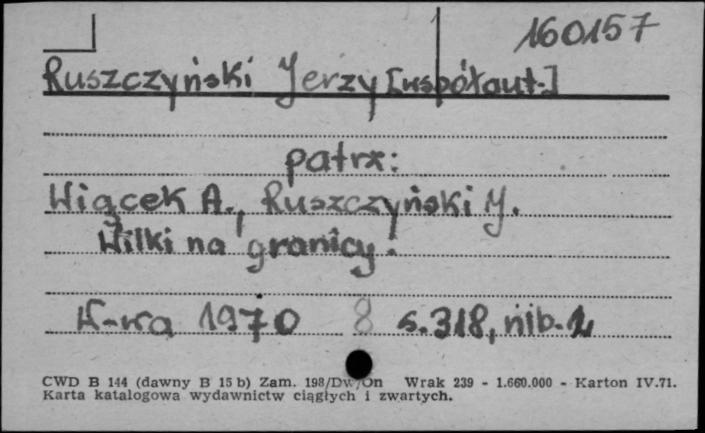 160157
Ruszczyński Jerzy [współaut.]
patrz:
Wiącek A., Ruszczyński J.
Wilki na granicy.
W-wa 1970 8 s. 318, nlb. 2
CWD B 144 (dawny B 15 b) Zam. 198/Dw/On Wrak 239 - 1.660.000 - Karton IV.71.
Karta katalogowa wydawnictw ciągłych i zwartych.